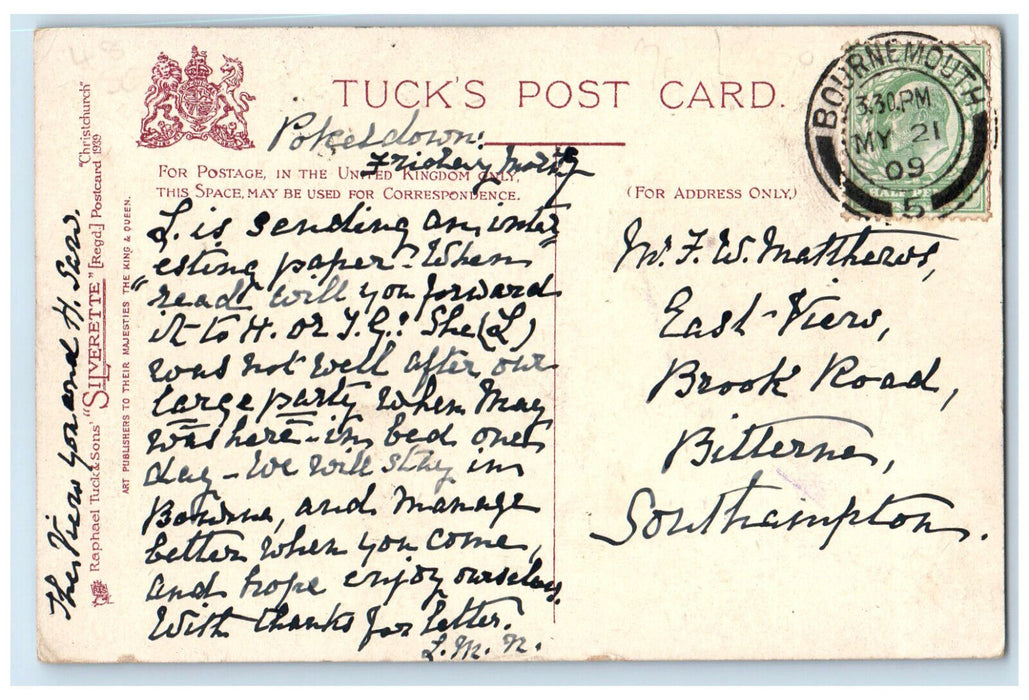 TUCK'S POST CARD.
Pokesdown:
FOR POSTAGE, IN THE UNITED KINGDOM ONLY,
THIS SPACE, MAY BE USED FOR CORRESPONDENCE.
L. is sending an inter
esting paper. When
"read" will you forward
it to H. or T.G.! She (L)
was not well after our
large party when May
was here - in bed one
day - We will stay in
Bourne, and manage
better when you come,
and hope enjoy ourselves.
With thanks for letter.
L. M. N.
This View you and H. saw.
Raphael Tuck & Sons' "SILVERETTE" [Regd.] Postcard 1939 "Christchurch"
ART PUBLISHERS TO THEIR MAJESTIES THE KING & QUEEN.
BOURNEMOUTH
3.30.PM
MY 21
09
5
(FOR ADDRESS ONLY.)
Mr. F. W. Matthews,
East-View,
Brook Road,
Bitterne,
Southampton.